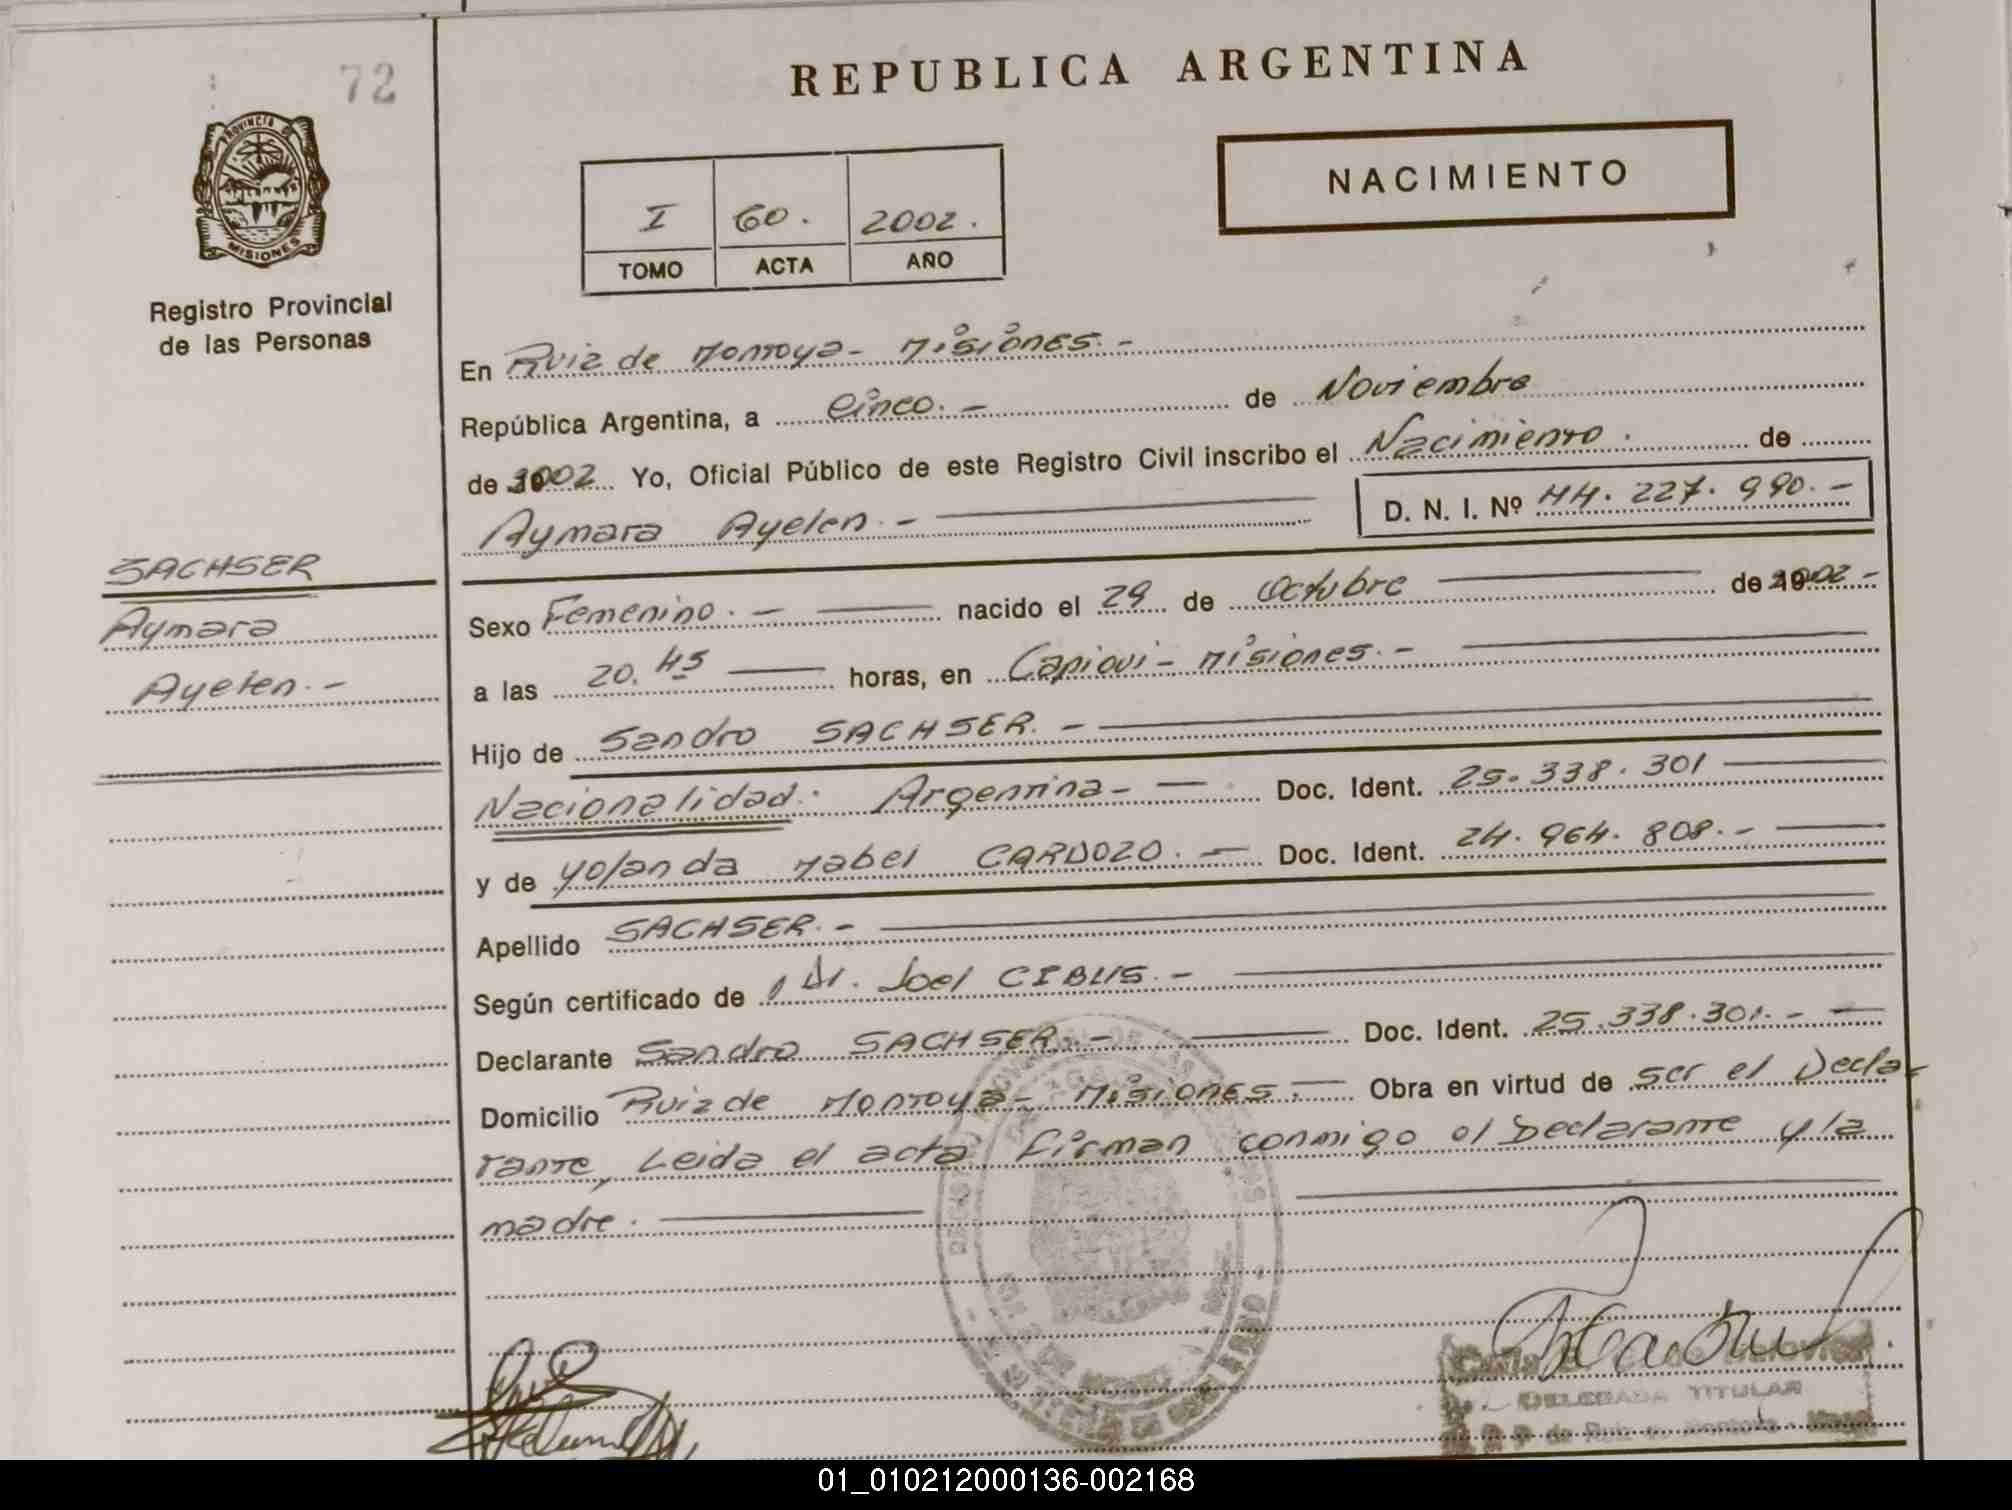 72
REPUBLICA ARGENTINA
PROVINCIA DE
MISIONES
Registro Provincial
de las Personas
NACIMIENTO
I 60. 2002.
TOMO ACTA AÑO
En Ruiz de Montoya - Misiones. -
República Argentina, a Cinco. - de Noviembre
de 2002 Yo, Oficial Público de este Registro Civil inscribo el Nacimiento. de
Aymara Ayelen. - D. N. I. Nº 44. 227. 990. -
SACHSER
Aymara
Ayelen. -
Sexo Femenino. - nacido el 29 de Octubre de 2002 -
a las 20. 45 horas, en Capiovi - Misiones. -
Hijo de Sandro SACHSER. -
Nacionalidad: Argentina - Doc. Ident. 25. 338. 301
y de Yolanda Mabel CARDOZO. - Doc. Ident. 24. 964. 808. -
Apellido SACHSER. -
Según certificado de Dr. Joel CIBLIS. -
Declarante Sandro SACHSER. - Doc. Ident. 25.338.301. -
Domicilio Ruiz de Montoya - Misiones. - Obra en virtud de ser el Decla-
rante, Leida el acta firman conmigo el Declarante y la
madre.
DELEGADA TITULAR
01_010212000136-002168